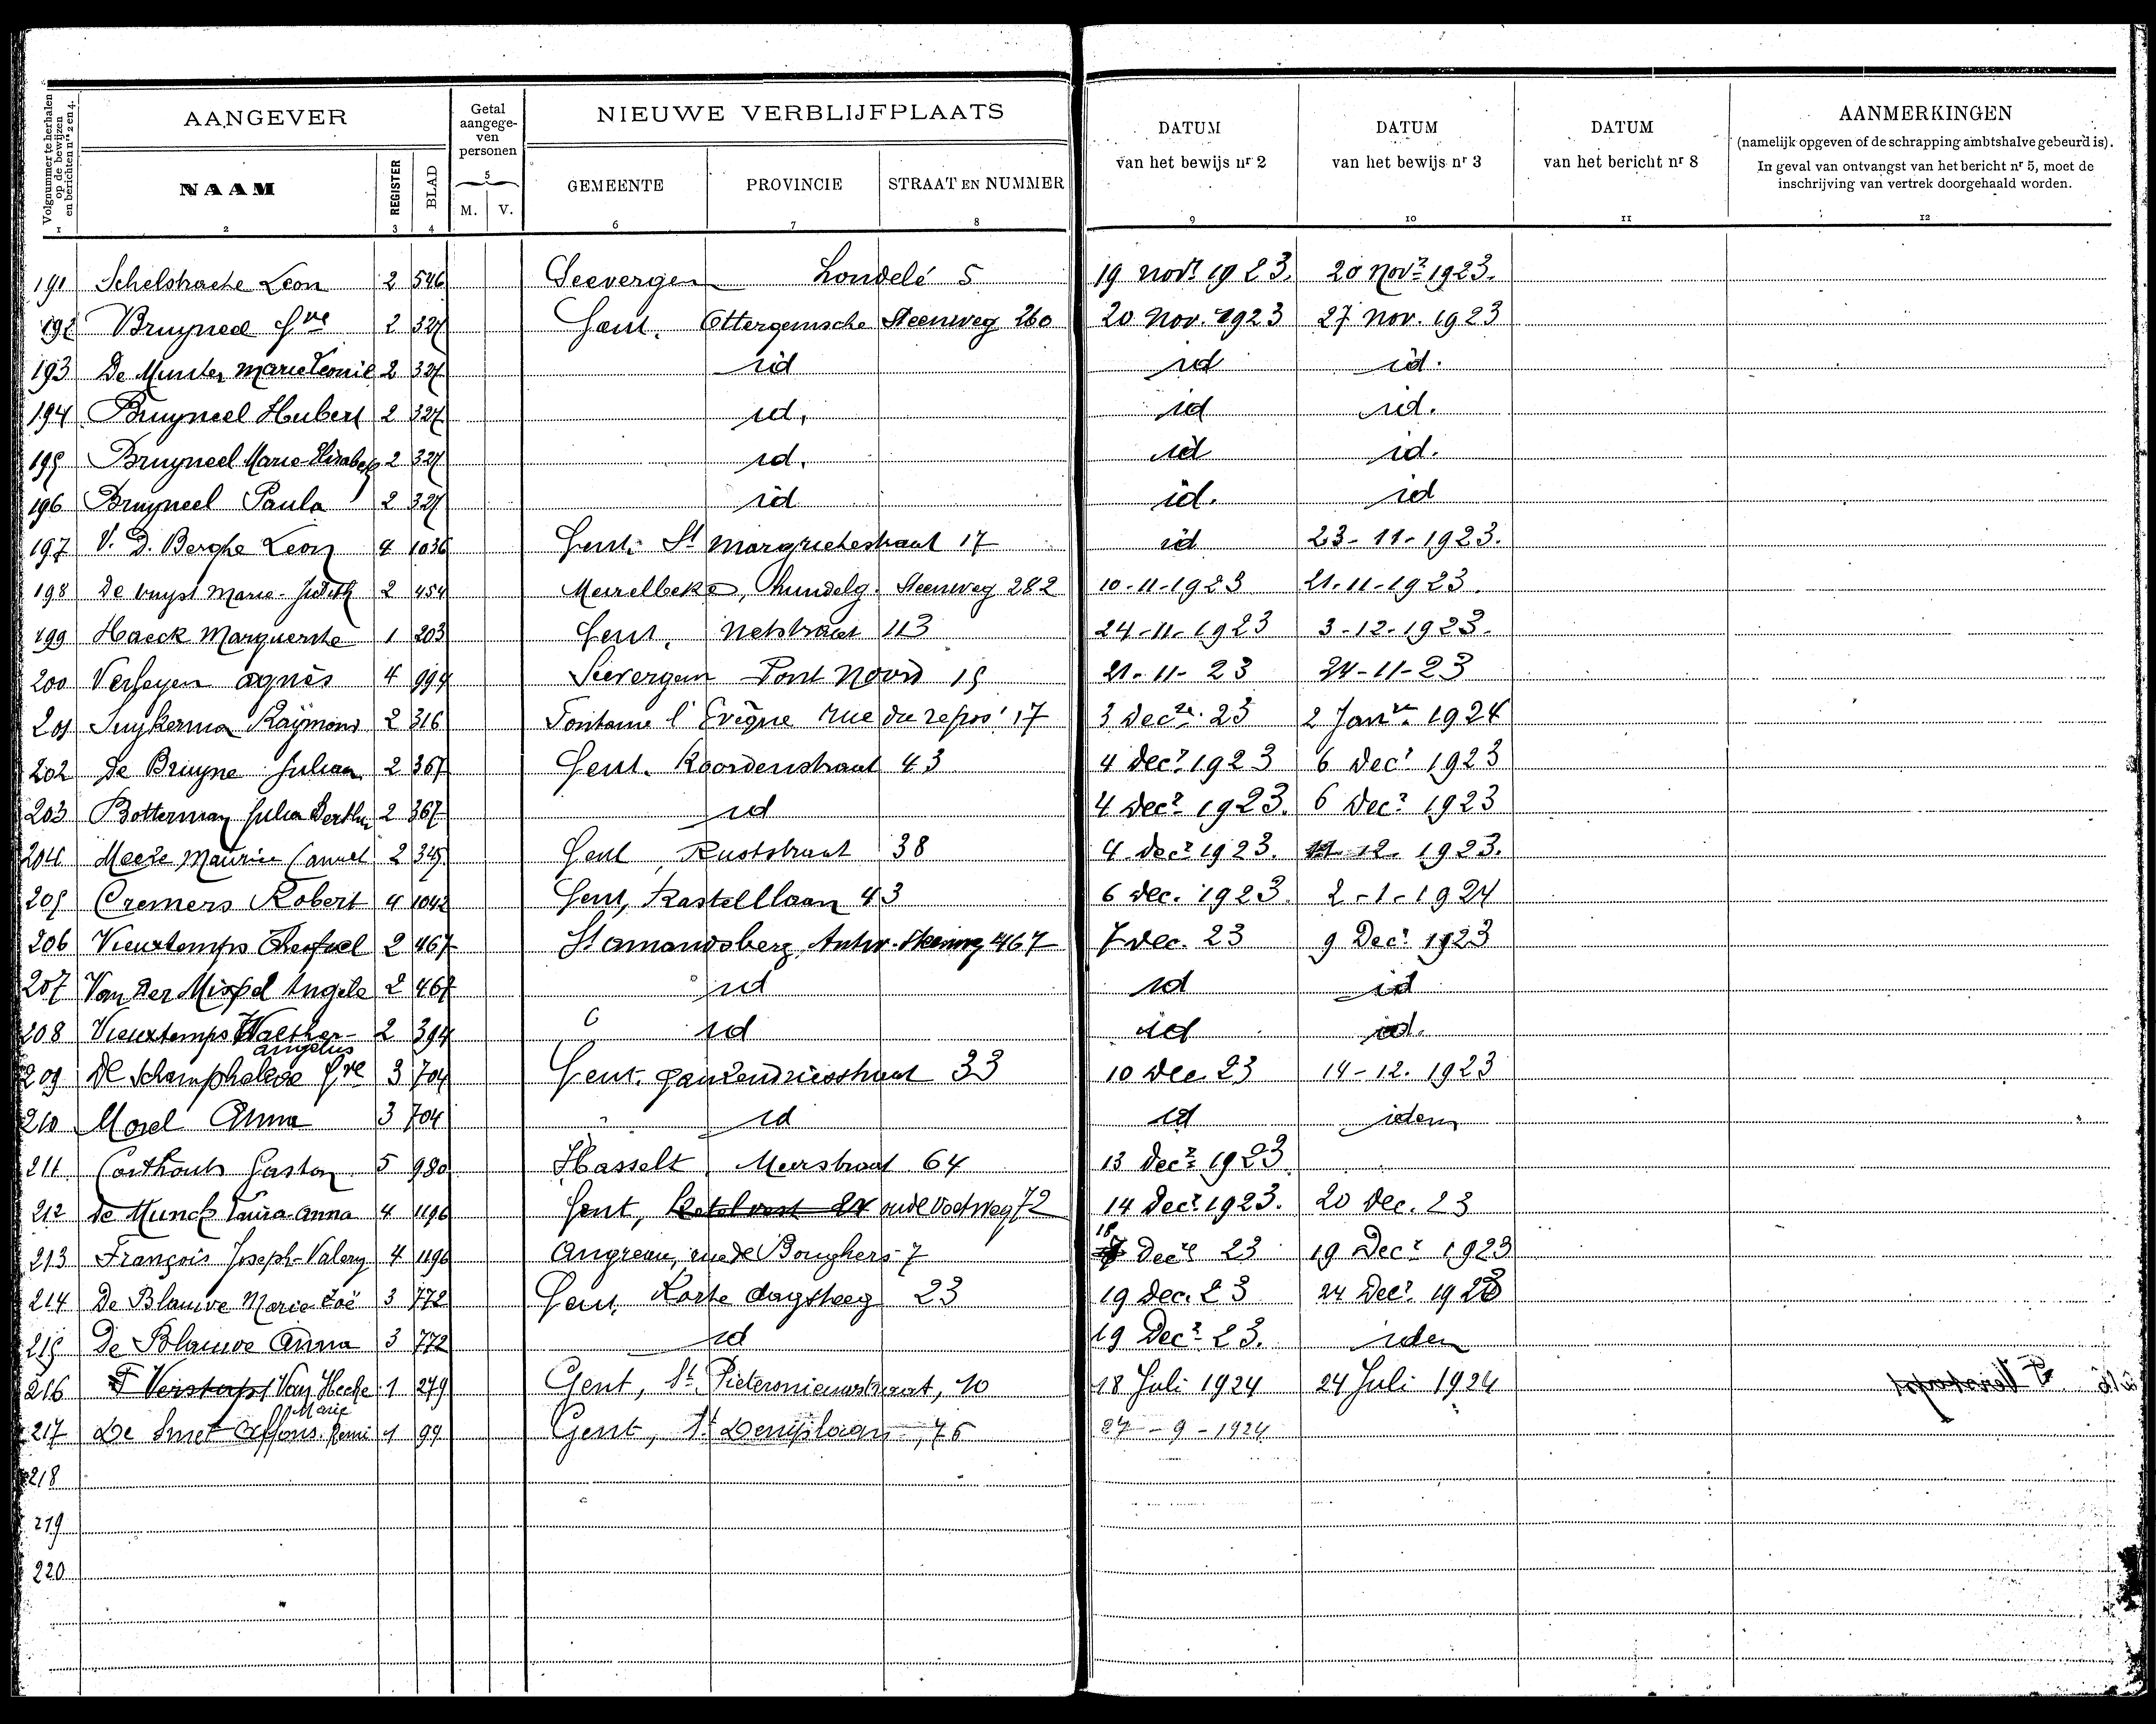 Volgnummer te herhalen op de bewijzen en berichten nrs 2 en 4.
AANGEVER
Getal aangegeven personen
NIEUWE VERBLIJFPLAATS
DATUM van het bewijs nr 2
DATUM van het bewijs nr 3
DATUM van het bericht nr 8
AANMERKINGEN
(namelijk opgeven of de schrapping ambtshalve gebeurd is).
In geval van ontvangst van het bericht nr 5, moet de
inschrijving van vertrek doorgehaald worden.
NAAM REGISTER BLAD M. V. GEMEENTE PROVINCIE STRAAT EN NUMMER
1 2 3 4 5 6 7 8 9 10 11 12
191 Leon 2 546 Londelé 5 19 novr 1923. 20 Novr 1923.
192 Bruyneel 2 327 Gent. Ottergemsche Steenweg 260 20 Nov. 1923 27 Nov. 1923
193 De Munter Marie Leonie 2 327 id id id.
194 Bruyneel Hubert 2 327 id. id id.
195 Bruyneel Marie-Elisabeth 2 327 id. id id.
196 Bruyneel Paula 2 327 id id. id
197 V. D. Berghe Leon 4 1036 Gent. St Margrietestraat 17 id 23-11-1923.
198 De vuyst Marie-Judith 2 454 Meirelbeke, Steenweg 282 10-11-1923 21-11-1923.
199 Haeck Marguerite 1 203 Gent, Netstraat 113 24-11-1923 3-12-1923.
200 Verheyen Agnès 4 994 Noord 15 21-11-23 24-11-23
201 Raymond 2 316 Fontaine l'Evêque rue du repos 17 3 Decre 23 2 Janer 1924
202 De Bruyne Julien 2 367 Gent. Koordenstraat 43 4 Decr 1923 6 Decr 1923
203 Botterman Julia Bertha 2 367 id 4 Decr 1923. 6 Decr 1923
204 Maurice Camiel 2 345 Gent, Ruststraat 38 4 decr 1923. 12. 1923.
205 Cremers Robert 4 1042 Gent, Kastellaan 43 6 dec. 1923. 2-1-1924
206 Vieuxtemps 2 467 St Amandsberg, Antw. Steenweg 467 7 Dec. 23 9 Decr 1923
207 Van der Mispel Angele 2 467 id id id
208 Vieuxtemps Walther-Angelus 2 394 id id id.
209 De 3 704 Gent. Ganzendriesstraat 33 10 Dec. 23 14-12. 1923
210 Morel Anna 3 704 id id idem
211 Corthouts Gaston 5 980 Hasselt, Meerstraat 64 13 Decr 1923
212 De Munck Laura-Anna 4 1196 Gent, Ketelvest 24 oude Voetweg 72 14 Decr 1923. 20 Dec. 23
213 François Joseph-Valery 4 1196 Angreau, rue de 7 18 Decre 23 19 Decr 1923
214 De Blauwe Marie Zoë 3 772 Gent, Korte dagsteeg 23 19 Dec. 23 24 Decr 1923
215 De Blauwe Anna 3 772 id 19 Decr 23. idem
216 F Verstapst Van Hecke Marie 1 279 Gent, St Pietersnieuwstraat, 10 18 Juli 1924 24 Juli 1924
217 De Smet Alfons. Remi 1 97 Gent, St Denijslaan, 76 27-9-1924
218
219
220